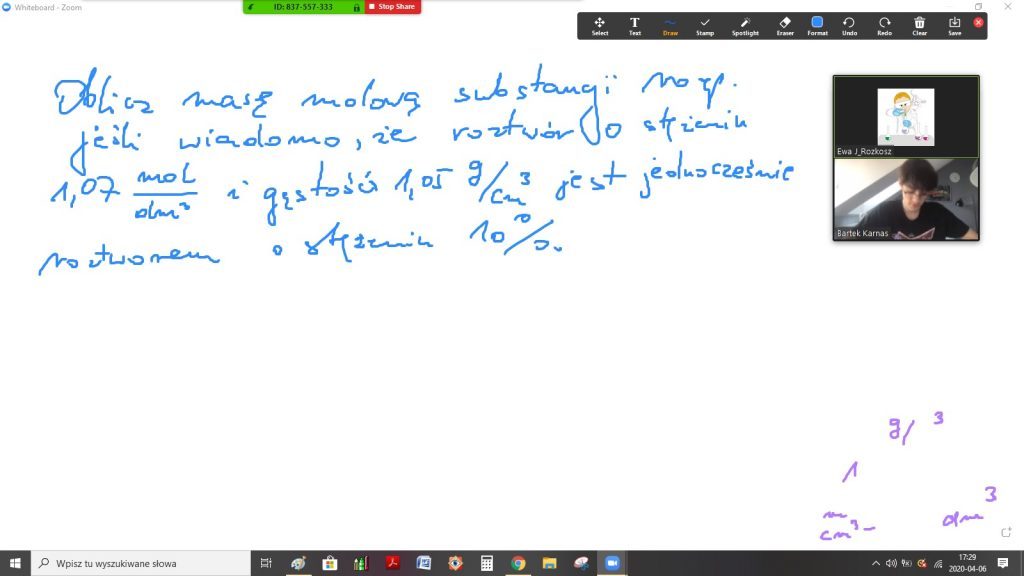 Whiteboard - Zoom
ID: 837-557-333
Stop Share
Select Text Draw Stamp Spotlight Eraser Format Undo Redo Clear Save
Oblicz masę molową substancji rozp.
jeśli wiadomo, że roztwór o stężeniu
1,07 mol/dm³ i gęstości 1,05 g/cm³ jest jednocześnie
roztworem o stężeniu 10%.
Ewa J_Rozkosz
Bartek Karnas
g/ 3
1
m
cm³- dm3
Wpisz tu wyszukiwane słowa
17:29
2020-04-06